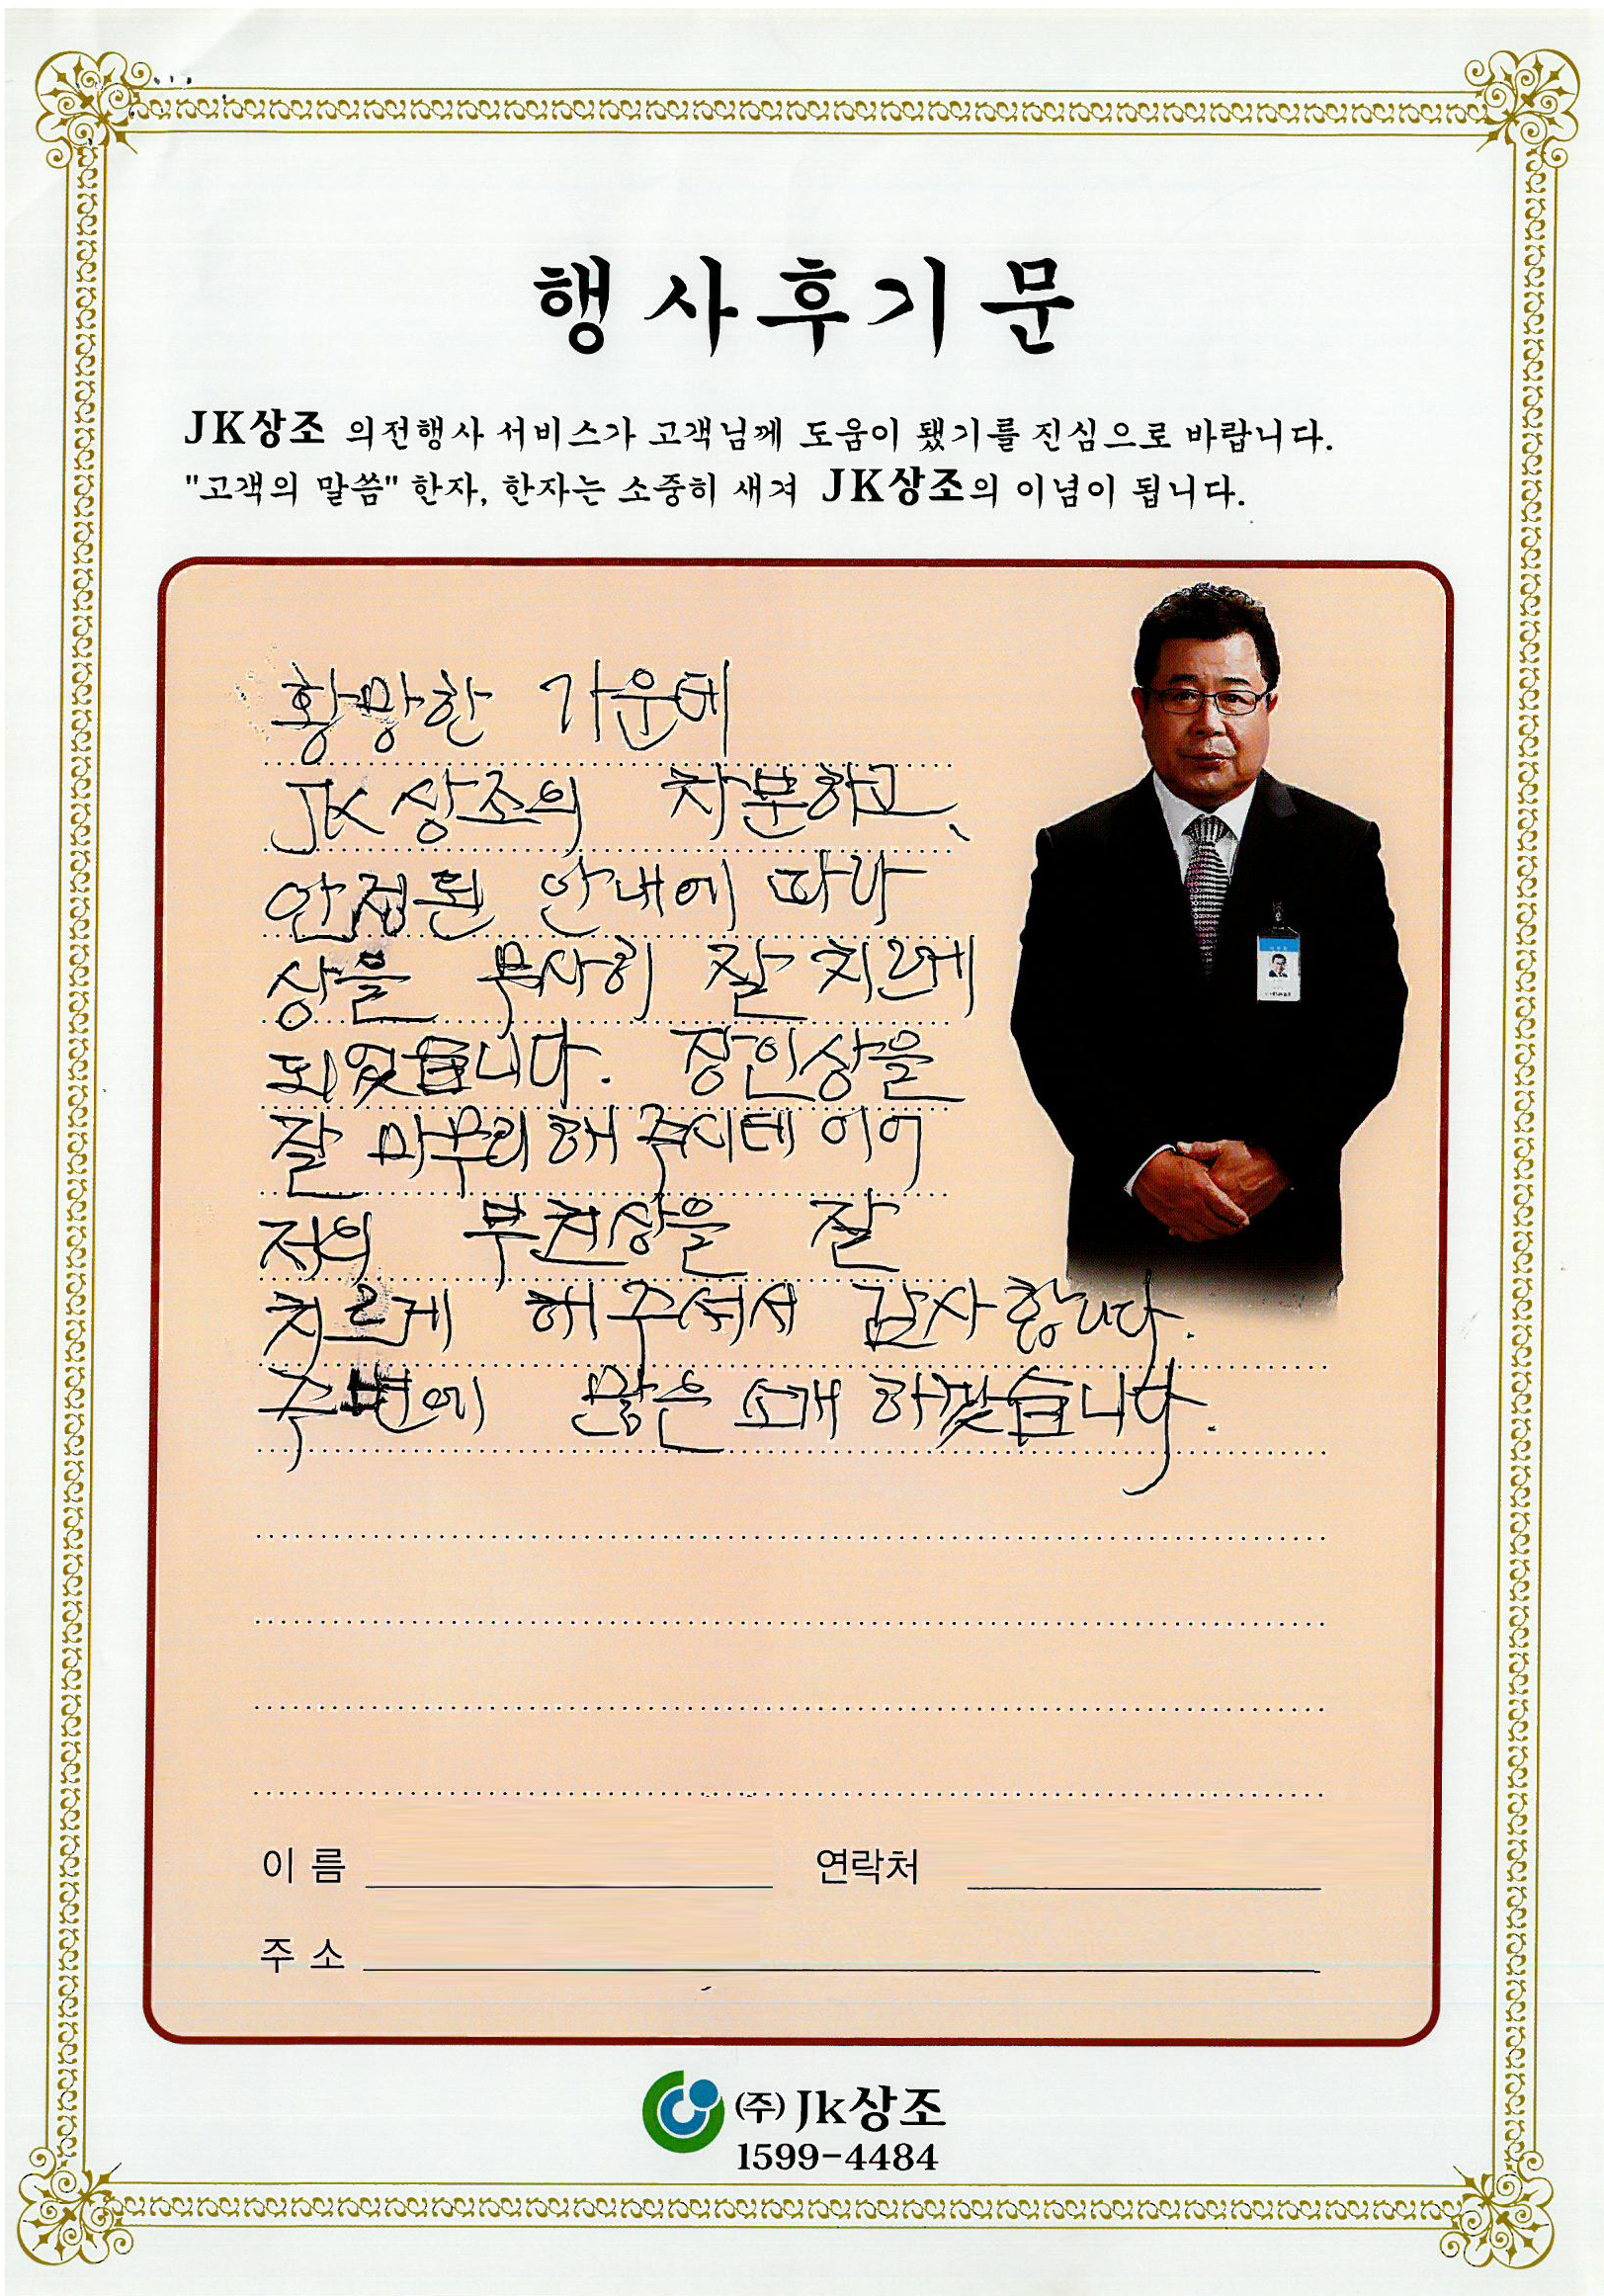 행사후기문
JK상조 의전행사 서비스가 고객님께 도움이 됐기를 진심으로 바랍니다.
"고객의 말씀" 한자, 한자는 소중히 새겨 JK상조의 이념이 됩니다.
황망한 가운데
JK상조의 차분하고,
안정된 안내에 따라
상을 무사히 잘 치르게
되었습니다. 장인상을
잘 마무리해 주신데 이어
저의 부친상을 잘
치르게 해주셔서 감사합니다.
주변에 많은 소개 하겠습니다.
이 름
연락처
주 소
(주) Jk상조
1599-4484